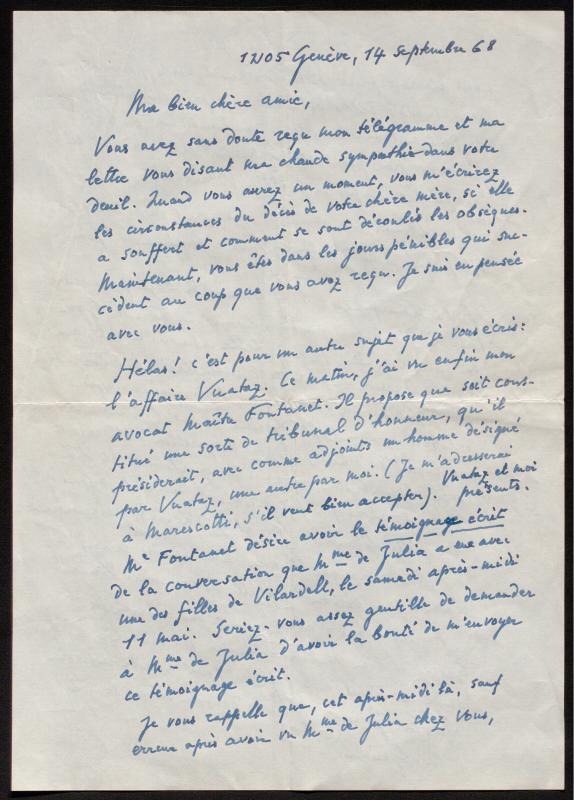 1205 Genève, 14 septembre 68
Ma bien chère amie,
Vous avez sans doute reçu mon télégramme et ma
lettre vous disant ma chaude sympathie dans votre
deuil. Quand vous aurez un moment, vous m'écrirez
les circonstances du décès de votre chère mère, si elle
a souffert et comment se sont déroulés les obsèques.
Maintenant, vous êtes dans les jours pénibles qui suc-
cèdent au coup que vous avez reçu. Je suis en pensée
avec vous.
Hélas! c'est pour un autre sujet que je vous écris:
l'affaire Vuataz. Ce matin, j'ai vu enfin mon
avocat Maître Fontanet. Il propose que soit cons-
titué une sorte de tribunal d'honneur, qu'il
présiderait, avec comme adjoints un homme désigné
par Vuataz, une autre par moi. (Je m'adresserai
à Marescotti, s'il veut bien accepter). Vuataz et moi
présents.
Me Fontanet désire avoir le témoignage écrit
de la conversation que Mme de Julia a eue avec
une des filles de Vilardell, le samedi après-midi
11 mai. Seriez-vous assez gentille de demander
à Mme de Julia d'avoir la bonté de m'envoyer
ce témoignage écrit.
Je vous rappelle que, cet après-midi là, sauf
erreur après avoir vu Mme de Julia chez vous,